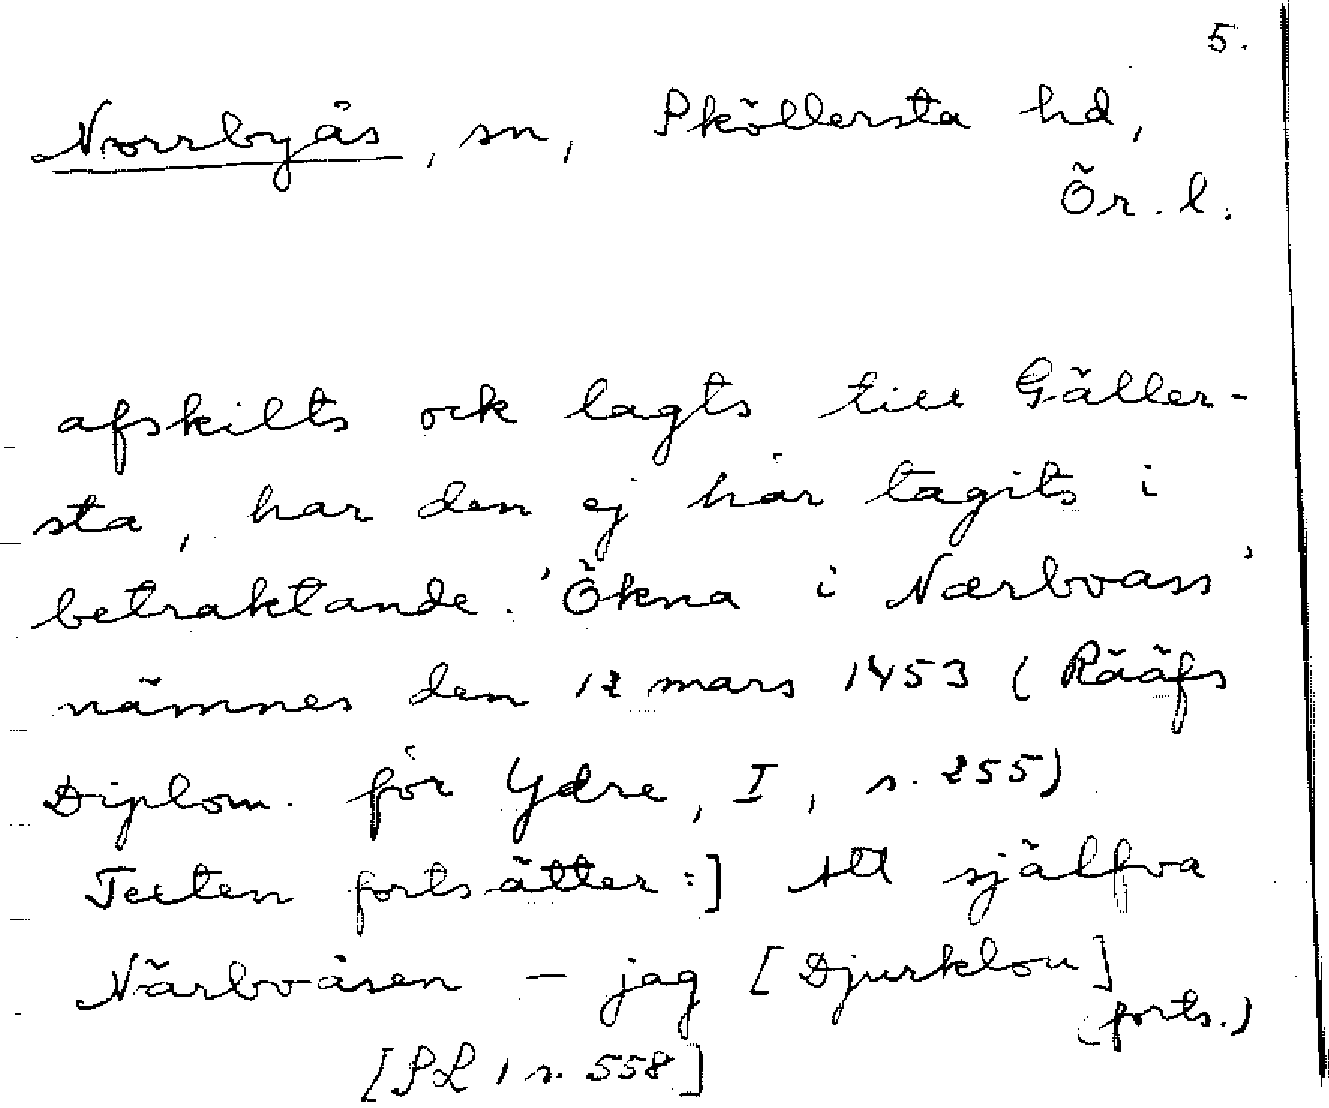 5.
Norrbyås, sn, Sköllersta hd,
Ör. l.
afskilts ock lagts till Gäller-
sta, har den ej här tagits i
betraktande. 'Ökna i Nærboass'
nämnes den 12 mars 1453 (Rääfs
Diplom. för Ydre, I, s. 255)
Texten fortsätter:] Att själfva
Närboåsen - jag [Djurklou]
(forts.)
[SL 1 s. 558]